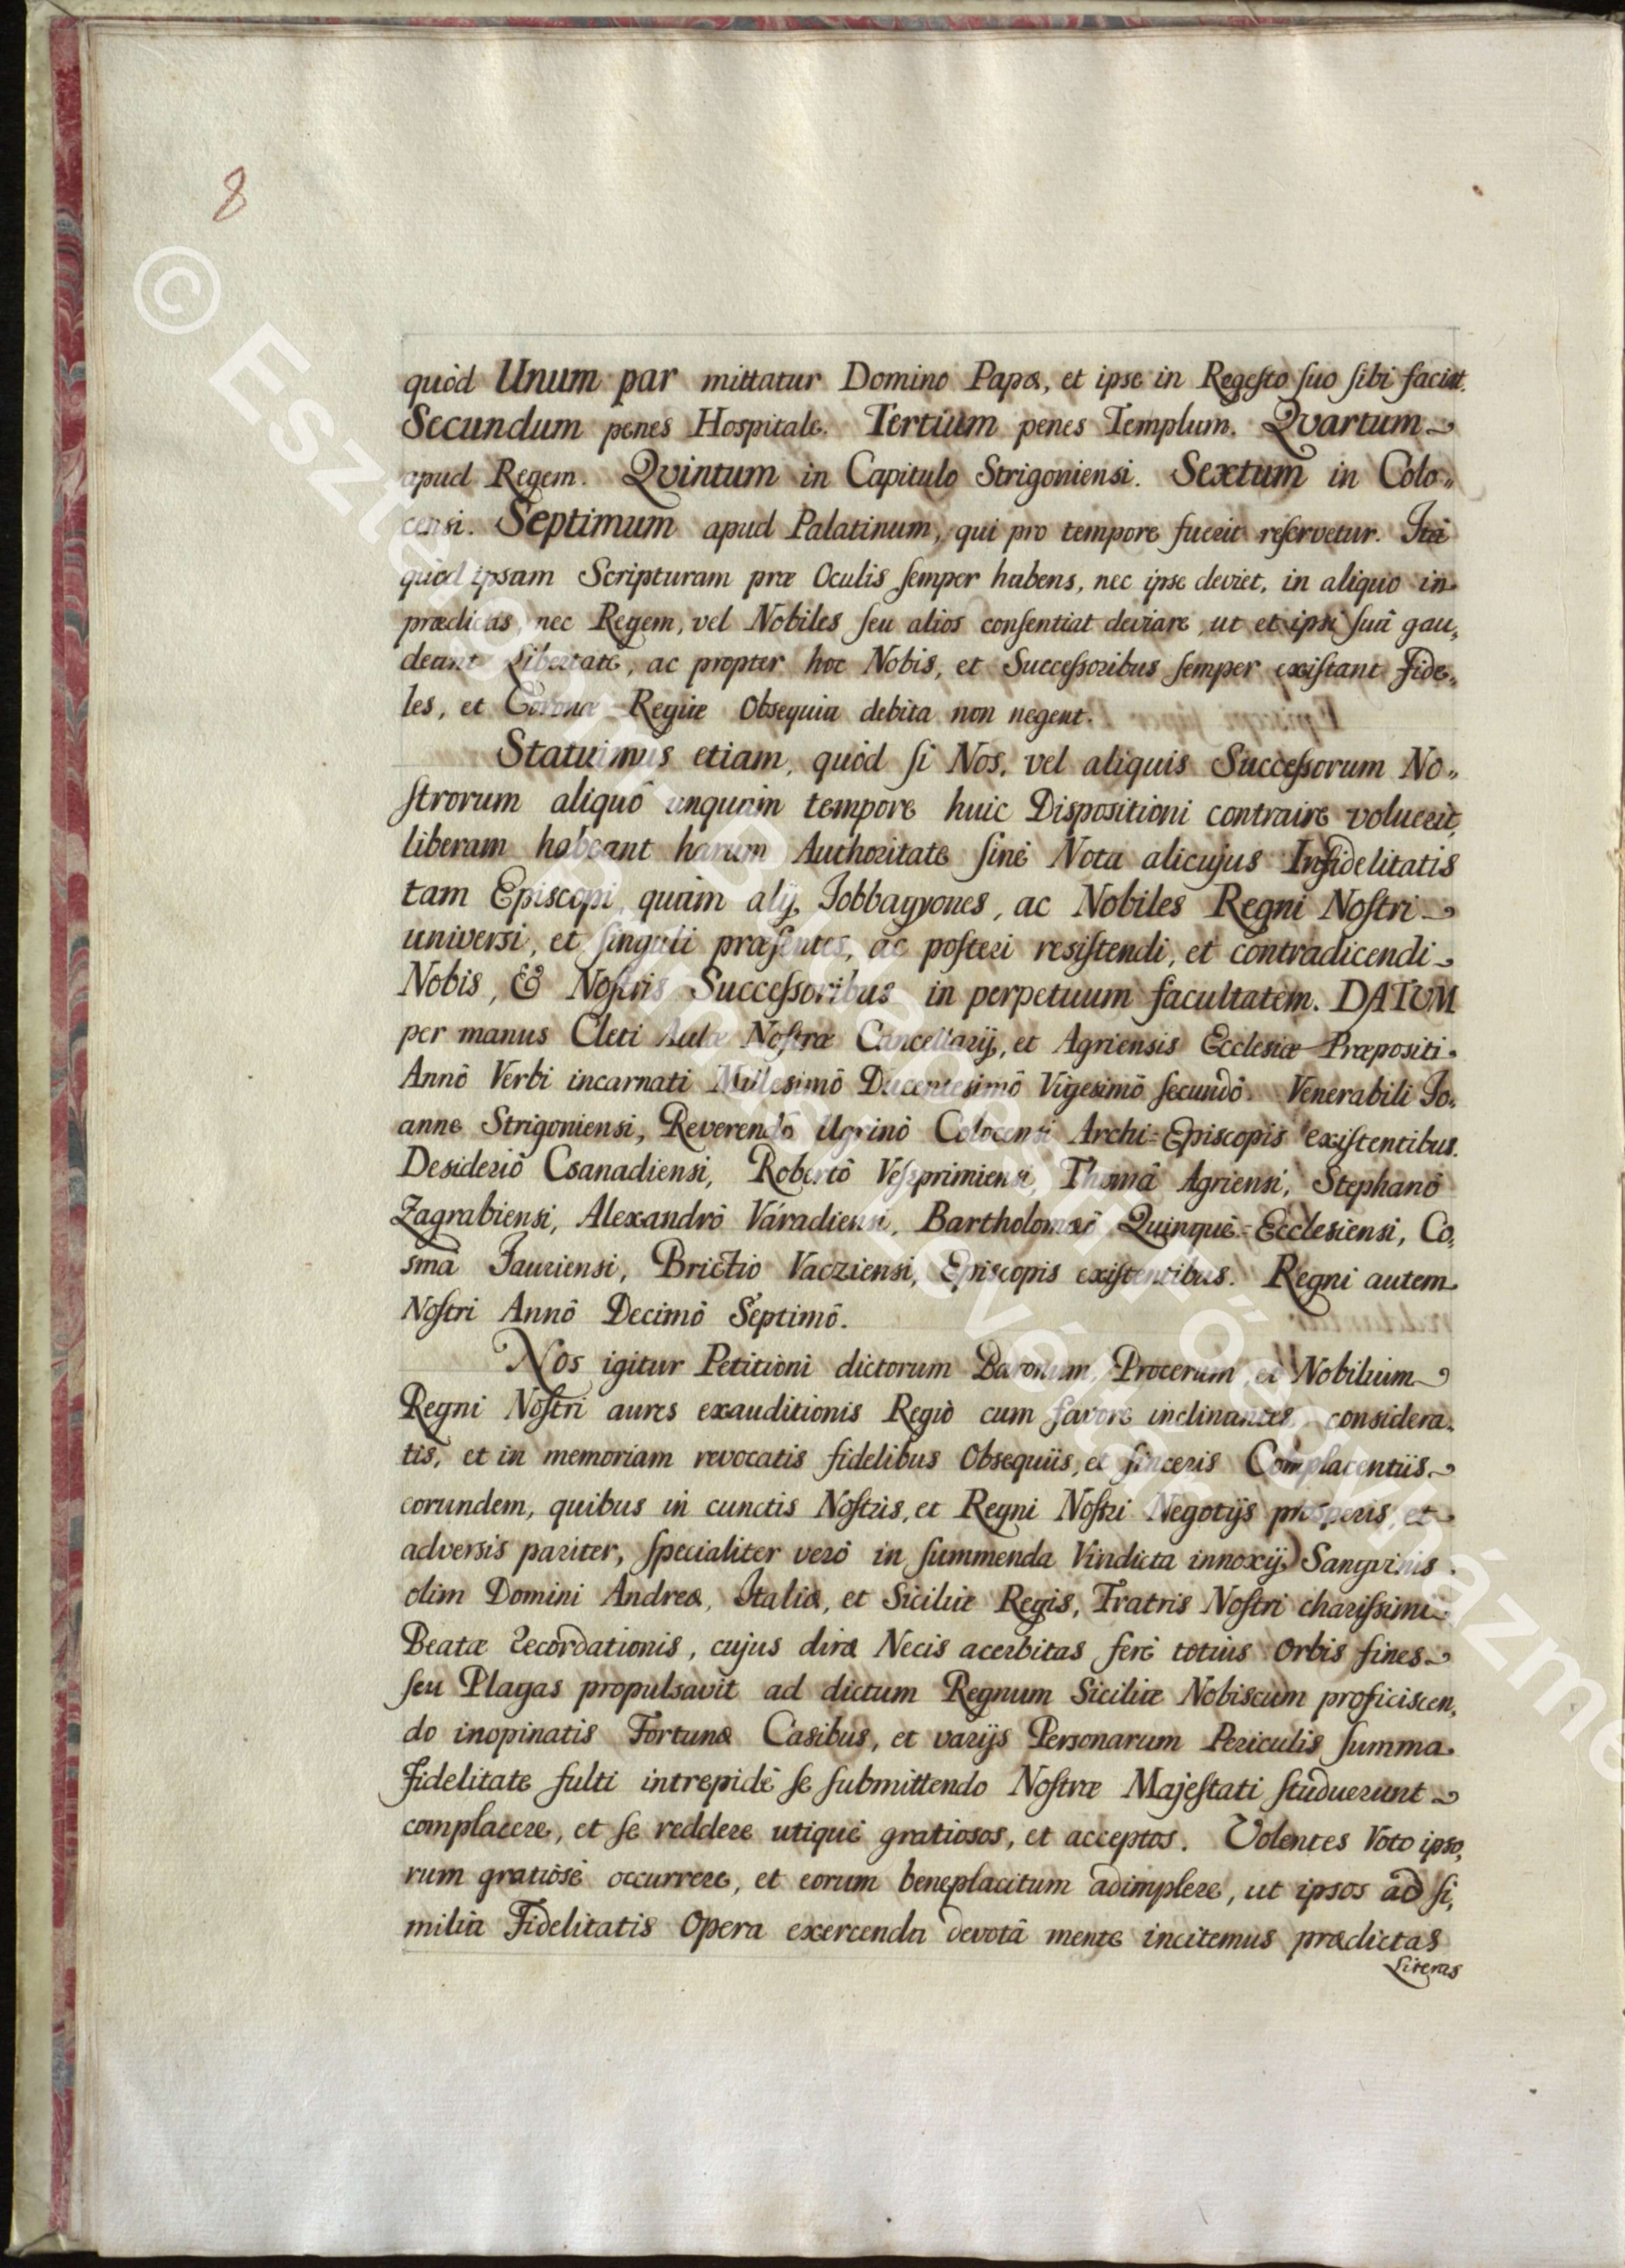 8
quòd Unum par mittatur Domino Papæ, et ipse in Regesto suo sibi faciat.
Secundum penes Hospitale. Tertium penes Templum. Qvartum
apud Regem. Qvintum in Capitulo Strigoniensi. Sextum in Colo„
censi. Septimum apud Palatinum, qui pro tempore fuerit reservetur. Ità
quòd ipsam Scripturam præ Oculis semper habens, nec ipse deviet, in aliquo in
prædictis, nec Regem, vel Nobiles seu alios consentiat deviare, ut et ipsi suâ gau„
deant Libertate, ac propter hoc Nobis, et Successoribus semper existant Fide„
les, et Coronæ Regiæ Obsequia debita non negent.
Statuimus etiam, quòd si Nos, vel aliquis Successorum No„
strorum aliquô unquam tempore huic Dispositioni contraire voluerit,
liberam habeant harum Authoritate sinè Nota alicujus Infidelitatis
tam Episcopi, quàm alij, Jobbagyones, ac Nobiles Regni Nostri
universi, et singuli præsentes, ac posteri resistendi, et contradicendi
Nobis, & Nostris Successoribus in perpetuum facultatem. DATUM
per manus Cleti Aulæ Nostræ Cancellarij, et Agriensis Ecclesiæ Præpositi.
Annô Verbi incarnati Millesimô Ducentesimô Vigesimô secundô. Venerabili Jo„
anne Strigoniensi, Reverendô Ugrinô Colocensi Archi=Episcopis existentibus.
Desideriô Csanadiensi, Robertô Veszprimiensi, Thomâ Agriensi, Stephanô
Zagrabiensi, Alexandrô Váradiensi, Bartholomæô Quinquè=Ecclesiensi, Co„
smâ Jauriensi, Brictio Vacziensi, Episcopis existentibus. Regni autem
Nostri Annô Decimô Septimô.
Nos igitur Petitioni dictorum Baronum, Procerum, et Nobilium
Regni Nostri aures exauditionis Regiò cum favore inclinantes, considera„
tis, et in memoriam revocatis fidelibus Obsequiis, et sinceris Complacentiis
eorundem, quibus in cunctis Nostris, et Regni Nostri Negotijs prosperis, et
adversis pariter, specialiter verò in summenda Vindicta innoxij Sangvinis
olim Domini Andreæ, Italiæ, et Siciliæ Regis, Fratris Nostri charissimi
Beatæ recordationis, cujus diræ Necis acerbitas ferè totius Orbis fines
seu Plagas propulsavit ad dictum Regnum Siciliæ Nobiscum proficiscen„
do inopinatis Fortunæ Casibus, et varijs Personarum Periculis summa
Fidelitate fulti intrepidè se submittendo Nostræ Majestati studuerunt
complacere, et se reddere utiquè gratiosos, et acceptos. Volentes Voto ipso„
rum gratiosè occurrere, et eorum beneplacitum adimplere, ut ipsos ad si„
milia Fidelitatis Opera exercenda devotâ mente incitemus prædictas
Literas